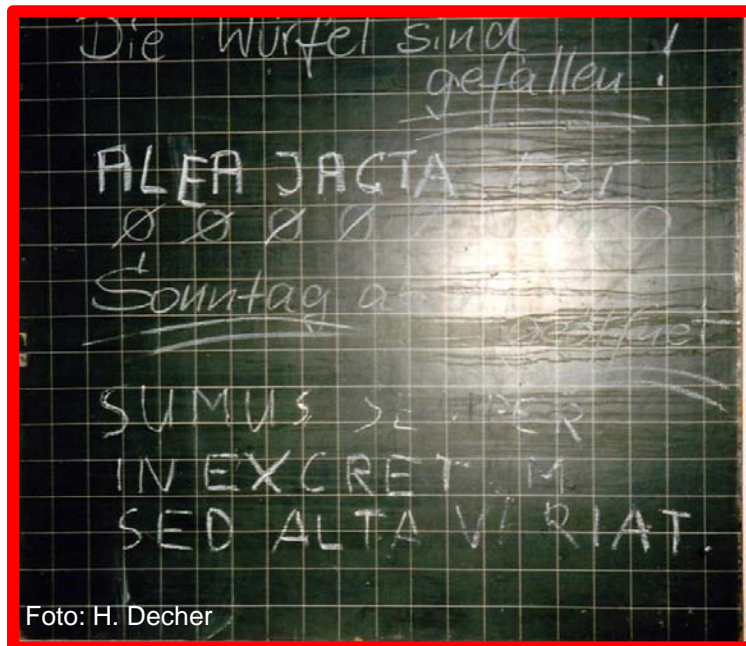 Die Würfel sind
gefallen!
ALEA JACTA EST
Ø Ø Ø Ø
Sonntag
geöffnet
SUMUS SEMPER
IN EXCRETUM
SED ALTA VARIAT.
Foto: H. Decher